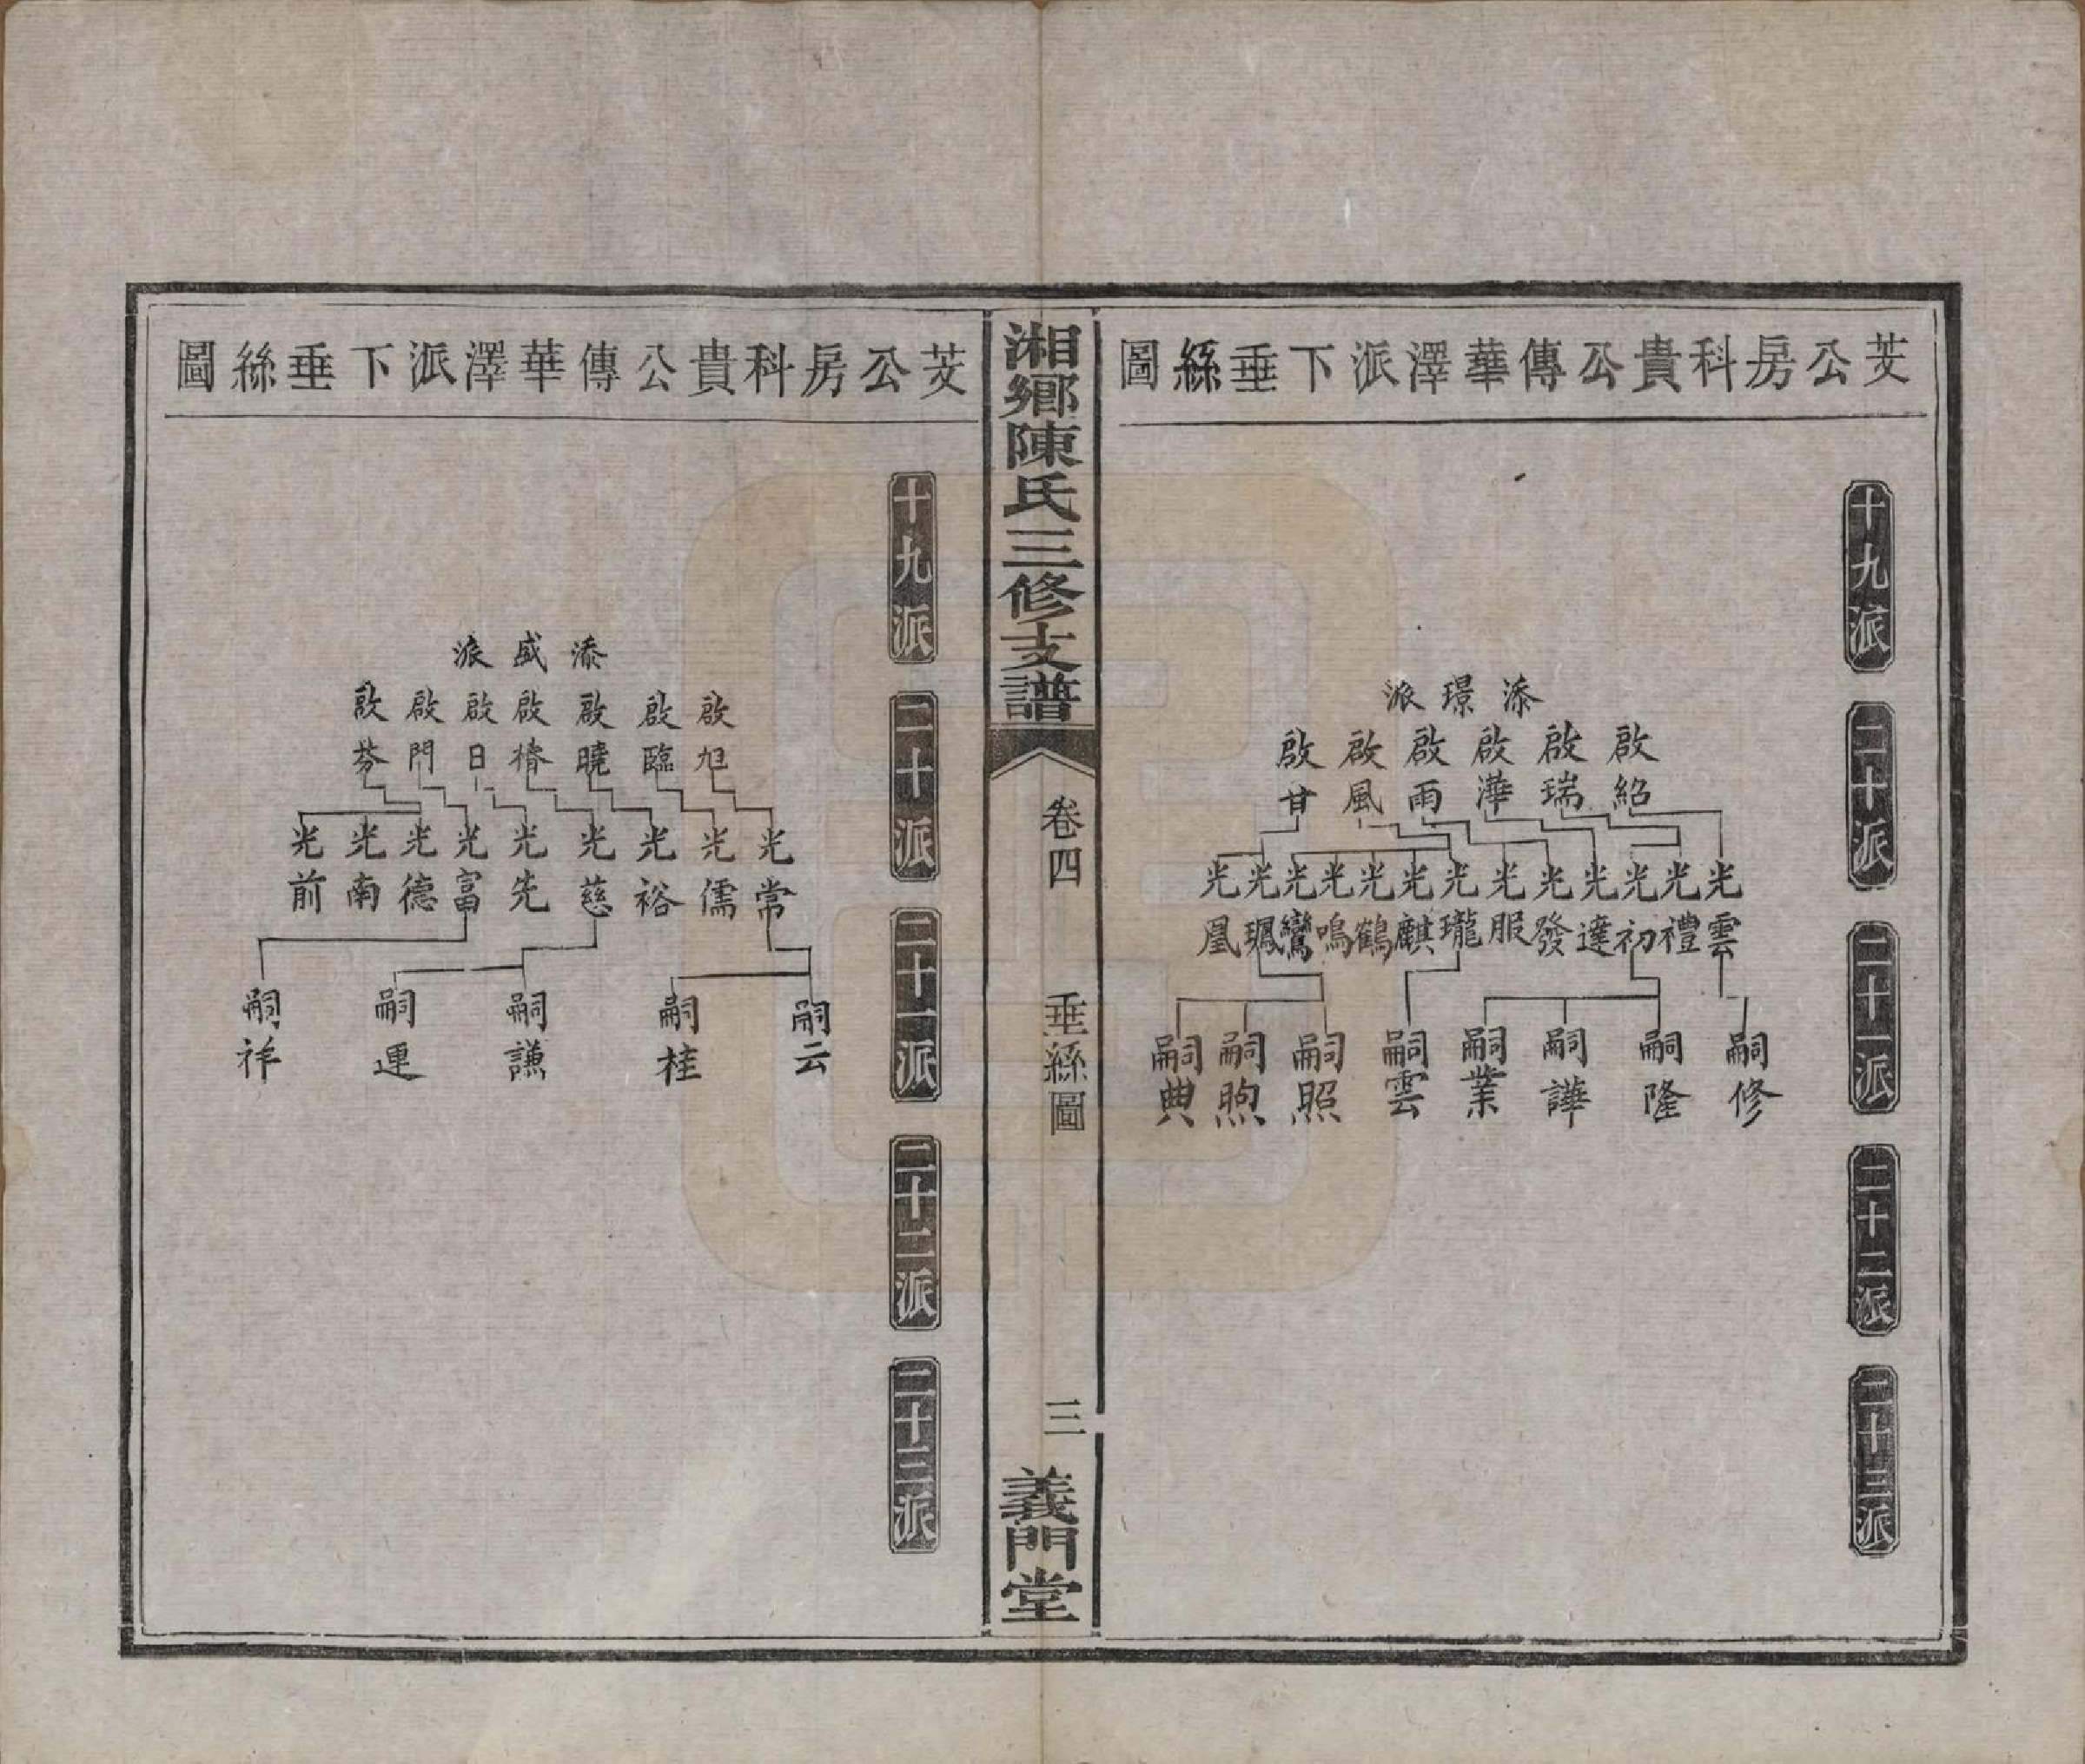 芰公房科貴公傳華澤派下垂絲圖
十九派
二十派
二十一派
二十二派
二十三派
添璟派
啟紹
啟瑞
啟澕
啟雨
啟風
啟甘
光雲
光禮
光初
光達
光發
光服
光瓏
光麒
光鶴
光鳴
光鸞
光珮
光凰
嗣修
嗣隆
嗣譁
嗣業
嗣雲
嗣照
嗣煦
嗣典
湘鄉陳氏三修支譜
卷四
垂絲圖
三
義門堂
芰公房科貴公傳華澤派下垂絲圖
十九派
二十派
二十一派
二十二派
二十三派
添盛派
啟旭
啟臨
啟曉
啟椿
啟日
啟門
啟芬
光常
光儒
光裕
光慈
光先
光富
光德
光南
光前
嗣云
嗣桂
嗣謙
嗣運
嗣祥